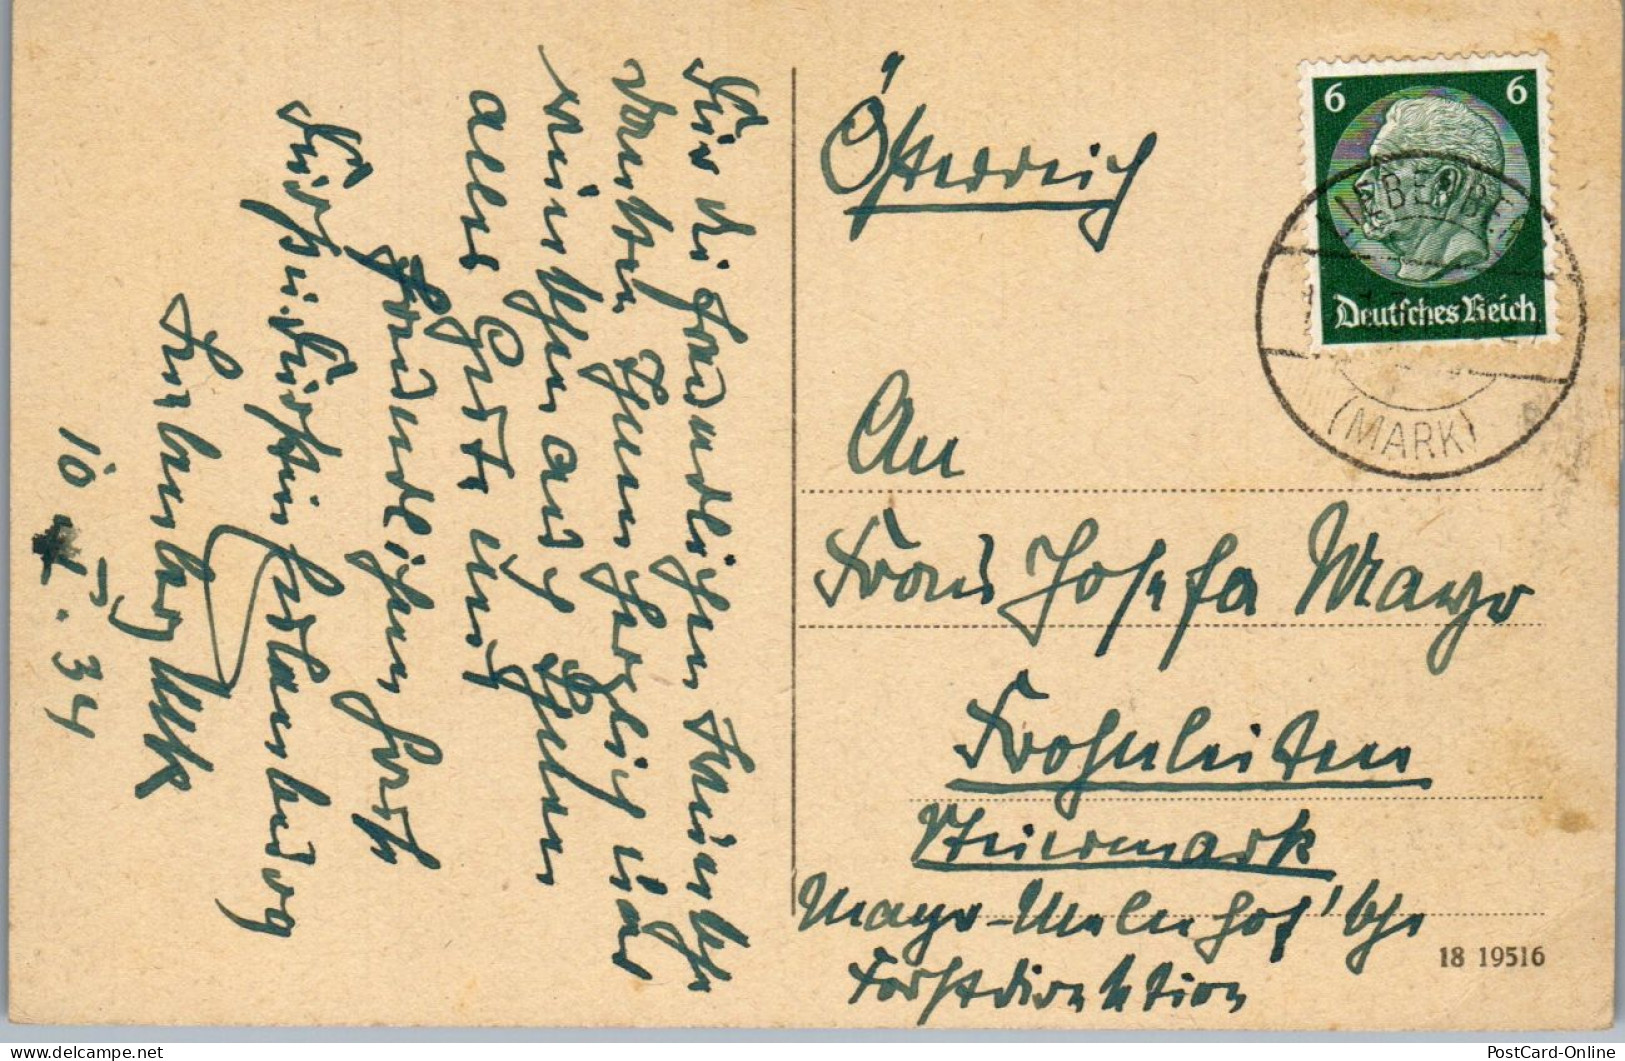 Für die freundlichen Wünsche
danken Ihnen herzlich und
wünschen auch Ihnen
alles Gute mit
freundlichen
Fürst u. Fürstin
Liebenberg Mk
10. I. 34
Österreich
An
Frau Josefa Mayr
Frohnleiten
Steiermark
Mayr-Melnhof'sche
Forstdirektion
6 6
Deutsches Reich
LIEBENBERG
(MARK)
18 19516
PostCard-Online
www.delcampe.net